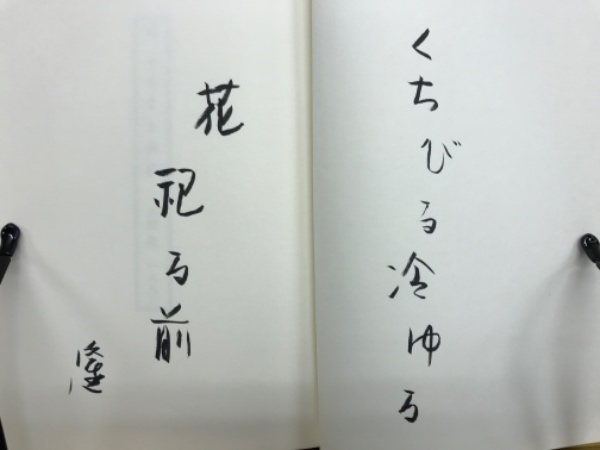 くちびる冷ゆる
花祀る前